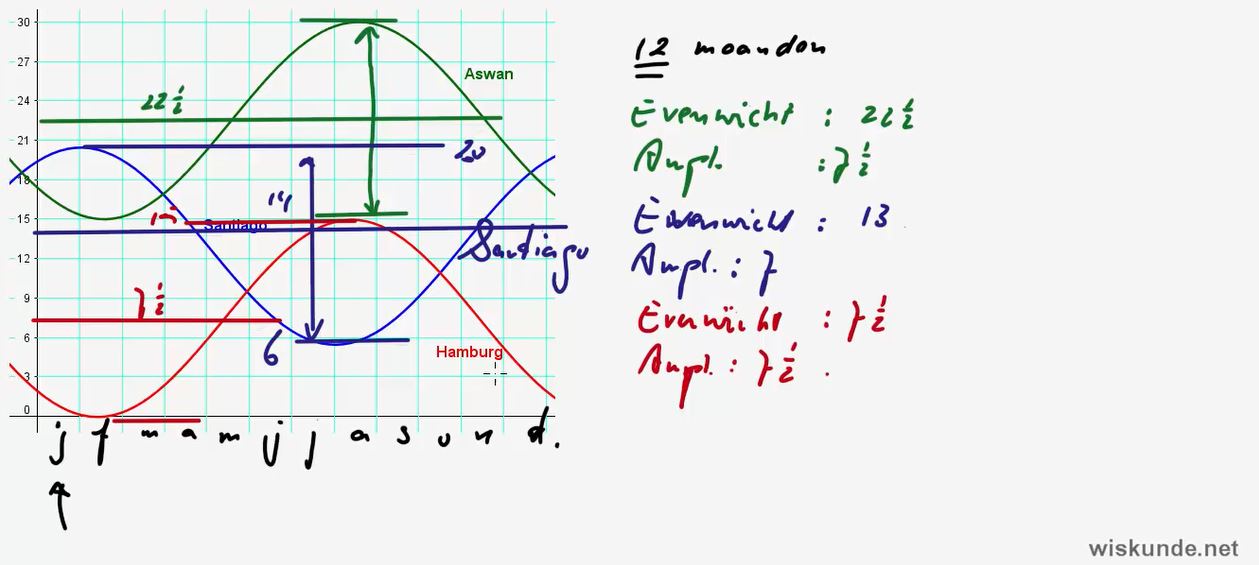 30
27
24
21
18
15
12
9
6
3
0
Aswan
22 ½
20
14
15
Santiago
Santiago
7 ½
6
Hamburg
j f m a m j j a s o n d.
12 maanden
Evenwicht : 22 ½
Ampl. : 7 ½
Evenwicht : 13
Ampl. : 7
Evenwicht : 7 ½
Ampl. : 7 ½ .
wiskunde.net